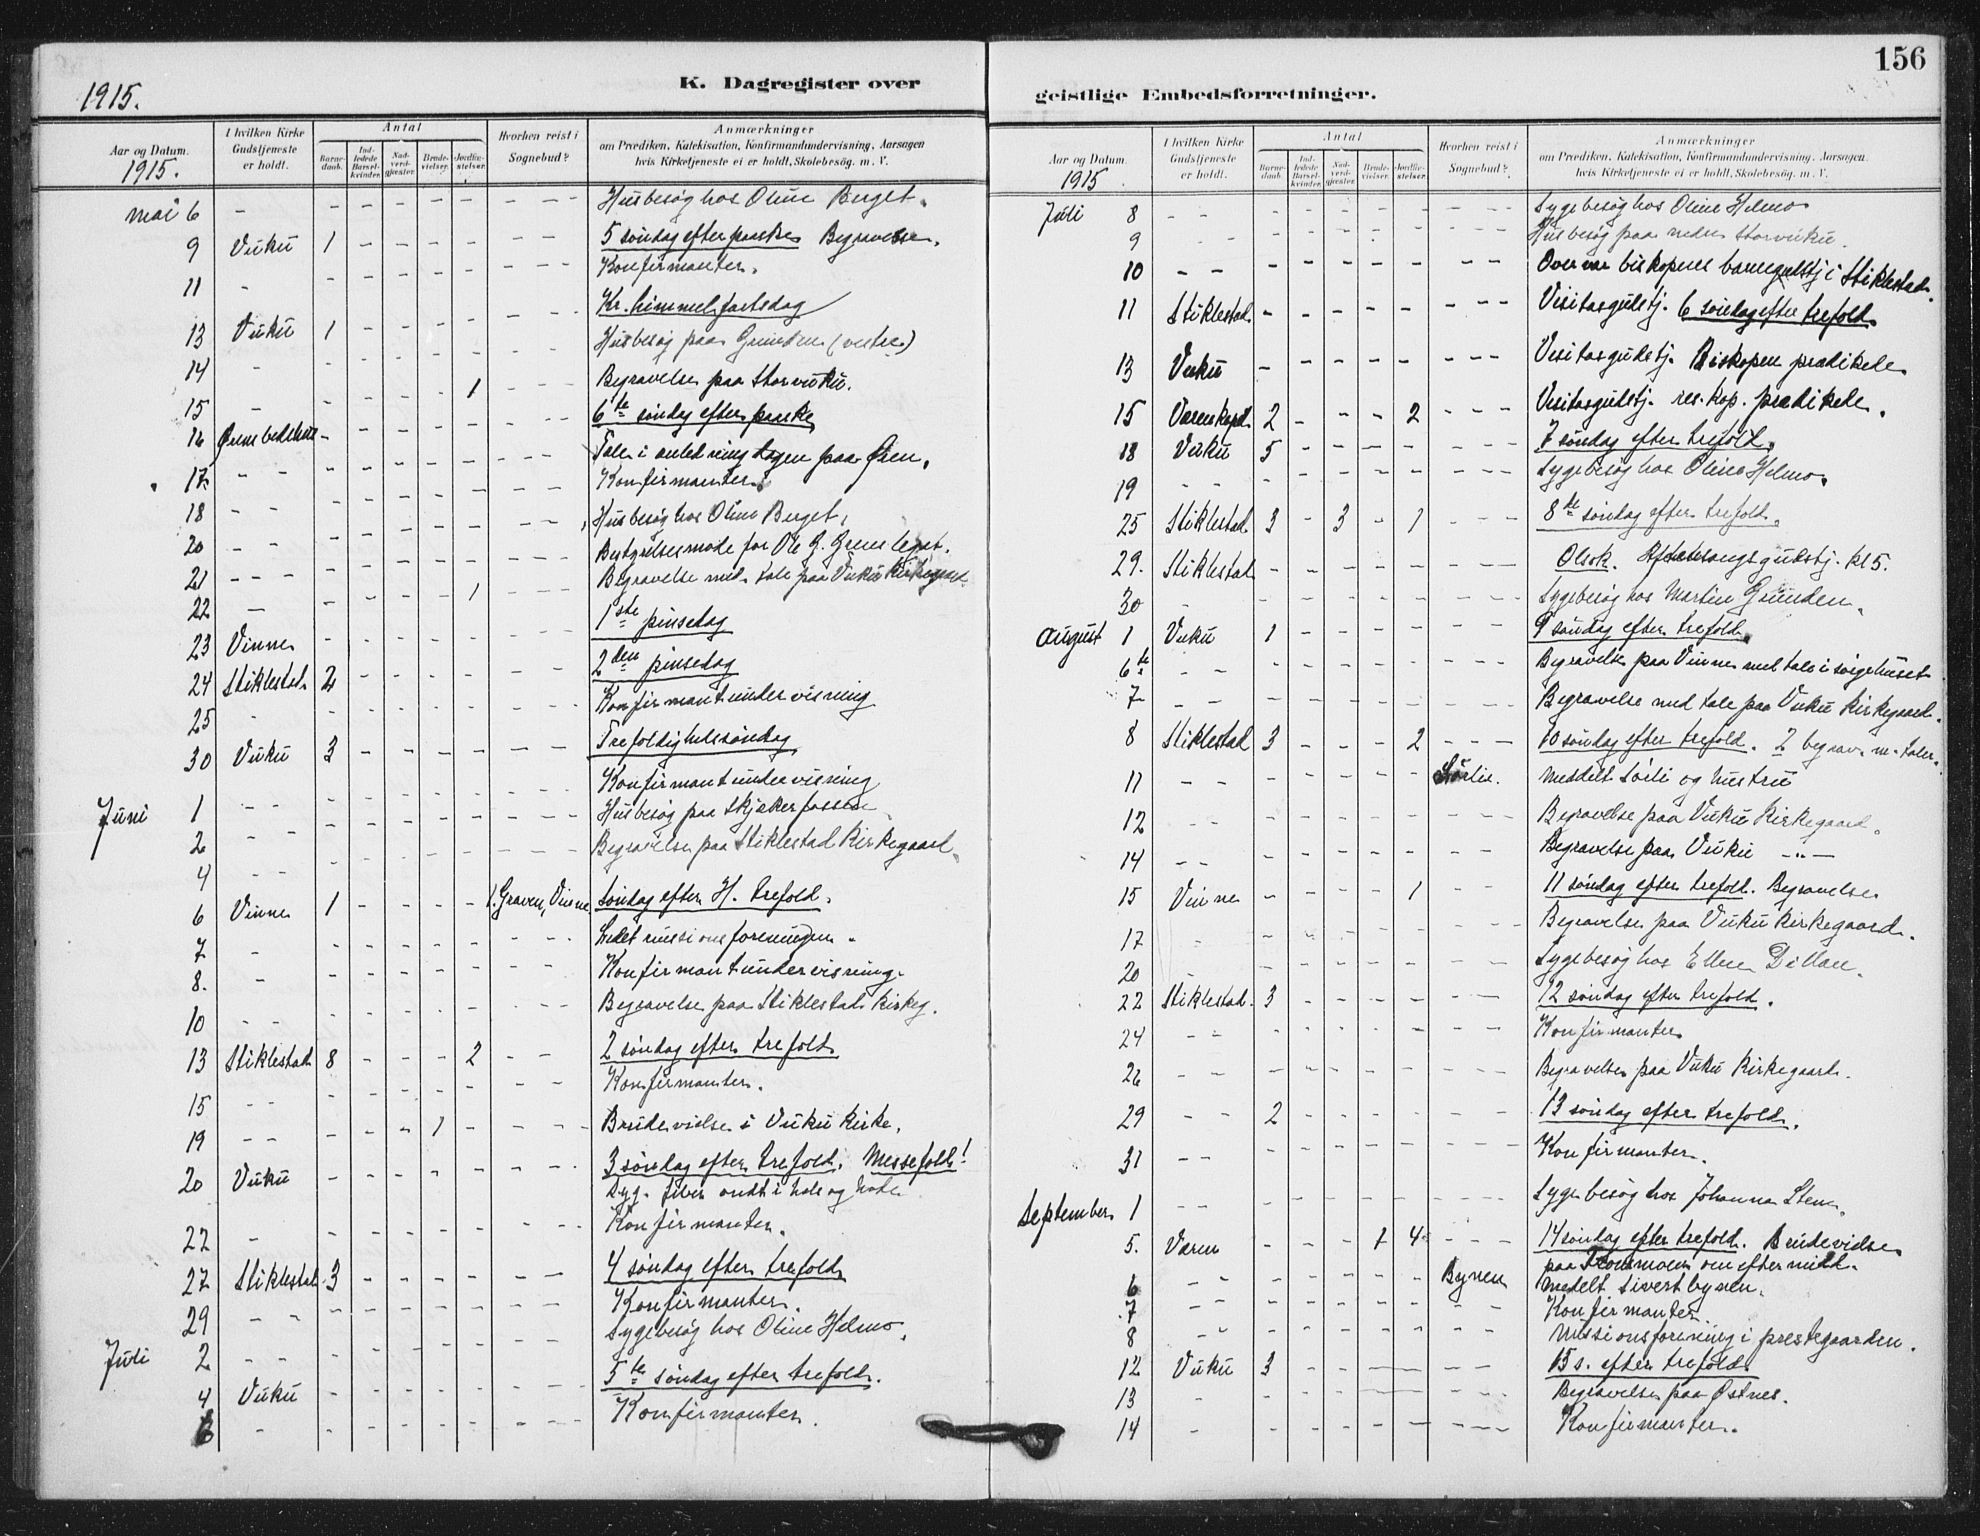 1915.
K. Dagregister over
Aar og Datum.
1915.
I hvilken Kirke
Gudstjeneste
er holdt.
Antal
Barne-
daab.
Ind-
ledede
Barsel-
kvinder.
Nad-
verd-
gjester.
Brude-
vielser.
Jordfæ-
stelser.
Hvorhen reist i
Sognebud?
Anmærkninger
om Prædiken, Katekisation, Konfirmandundervisning, Aarsagen
hvis Kirketjeneste ei er holdt, Skolebesøg. m. V.
mai 6 - Husbesøg hos Oline Berget.
9 Vuku 1 - - - - - - - 5 søndag efter paaske Begravelse.
11 - Konfirmanter.
13 Vuku 1 - - - - - - - Kr. himmelfartsdag
14 - Husbesøg paa Grunden (vestre)
15 - - - - - 1 - - - Begravelse paa Storvuku.
16 - - - - - - - - 6te søndag efter paaske
17 - - Tale i anledning dagen paa Øren.
Konfirmanter.
18 - - Husbesøg hos Oline Berget.
20 - - Bestyrelsesmøde for Ole G. Grens legat.
21 - - - Begravelse med tale paa Vuku Kirkegaard.
22 - - - - - 1 - - -
23 Vinne 1ste pinsedag
24 Stiklestad 2 - - - - - - - 2den pinsedag
25 - Konfirmantundervisning
30 Vuku 3 - - - - - - - Trefoldighetssøndag
Juni 1 - - Konfirmantundervisning
2 - - Husbesøg paa Skjækerfossen
4 - - Begravelse paa Stiklestad Kirkegaard.
6 Vinne 1 - - - - 1. Graven, Vinne Søndag efter H. trefold.
7 - Ledet missionsforeningen.
8. - Konfirmantundervisning.
10 - - Begravelse paa Stiklestad Kirkeg.
13 Stiklestad 8 - - - 2 - - 2 søndag efter trefold.
15 - - Konfirmanter.
19 - - - - - 1 - - - - Brudevielse i Vuku Kirke.
20 Vuku - - - - - - - - 3 søndag efter trefold. Messefald!
Syg. feber ondt i hals og hode
22 - Konfirmanter.
27 Stiklestad 3 - - - - - - - 4 søndag efter trefold.
29 - - Konfirmanter.
Juli 2 - - Sygebesøg hos Oline Helmo.
4 Vuku - - - - - - - - 5te søndag efter trefold.
6 - Konfirmanter.
156
geistlige Embedsforretninger.
Aar og Datum.
1915
I hvilken Kirke
Gudstjeneste
er holdt.
Antal
Barne-
daab.
Ind-
ledede
Barsel-
kvinder.
Nad-
verd-
gjester.
Brude-
vielser.
Jordfæ-
stelser.
Hvorhen reist i
Sognebud?
Anmærkninger
om Prædiken, Katekisation, Konfirmandundervisning. Aarsagen.
hvis Kirketjeneste ei er holdt, Skolebesøg. m. V.
Juli 8 - - Sygebesøg hos Oline Helmo
9 Husbesøg paa nedre Storvuku.
10 - - Overvar biskopens barnegudstj i Stiklestad.
11 Stiklestad - - - - - - - - Visitasgudstj. 6 søndag efter trefold.
13 Vuku - - - - - - - - Visitasgudstj. Biskopen prædikede
15 2 - - - 2 - - - Visitasgudstj. res. kap. prædikede.
18 Vuku 5 - - - - - - - 7 søndag efter trefold.
19 - - Sygebesøg hos Oline Helmo.
25 Stiklestad 3 - 3 - 1 - - - 8de søndag efter trefold.
29. Stiklestad - - - - - - - - Olsok. Aftensangsgudstj. kl 5.
30 - Sygebesøg hos Martin Grunden.
august 1 Vuku 1 - - - - - - - 9 søndag efter trefold.
6te - - Begravelse paa Vinne med tale i sørgehuset
7 - - Begravelse med tale paa Vuku Kirkegaard.
8 Stiklestad 3 - - - 2 - - - 10 søndag efter trefold. 2 begrav. m. taler.
11 - - Sørlie. meddelt Sørli og hustru
12 - - Begravelse paa Vuku Kirkegaard.
14 - - Begravelse paa Vuku -"-
15 Vinne - - - - 1 - - - 11 søndag efter trefold. Begravelse
17 Begravelse paa Vuku Kirkegaard.
20 - Sygebesøg hos Ellen Dillan.
22 Stiklestad. 3 - - - - - - - 12 søndag efter trefold.
24 - - Konfirmanter
26 - - Begravelse paa Vuku Kirkegaard.
29 - - 2 - - - - - - - 13 søndag efter trefold.
31 - - Konfirmanter.
September 1 - - Sygebesøg hos Johanna Sten.
5. Væren - - - 1 4 - - - 14 søndag efter trefold. Brudevielse
paa om eftermidd.
6 - - Bynen Meddelt Sivert bynen.
7 - - Konfirmanter.
8 - - Missionsforening i prestegaarden.
12 Vuku 3 - - - - 15 s. efter trefold.
13 - Begravelse paa Østnes.
14 - Konfirmanter.